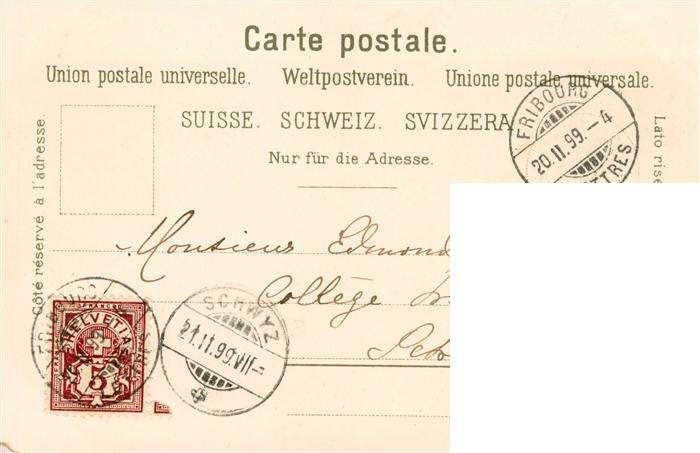 Carte postale.
Union postale universelle. Weltpostverein. Unione postale universale.
SUISSE. SCHWEIZ. SVIZZERA
Nur für die Adresse.
Côté réservé à l'adresse.
Lato rise
FRIBOURG
20.11.99.-4
TTRES
Monsieur Edmon
Collège
SCHWYZ
21.11.99.VII-
FRIBOURG
HELVETIA
5